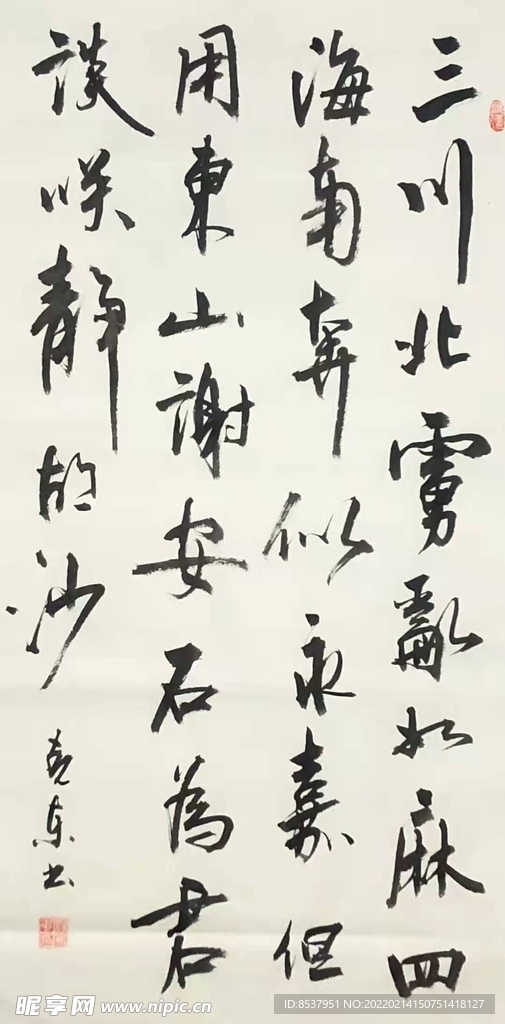 三川北虜亂如麻四
海南奔似永嘉但
用東山謝安石為君
談咲靜胡沙
堯东书
昵享网 www.nipic.cn
ID:8537951 NO:20220214150751418127